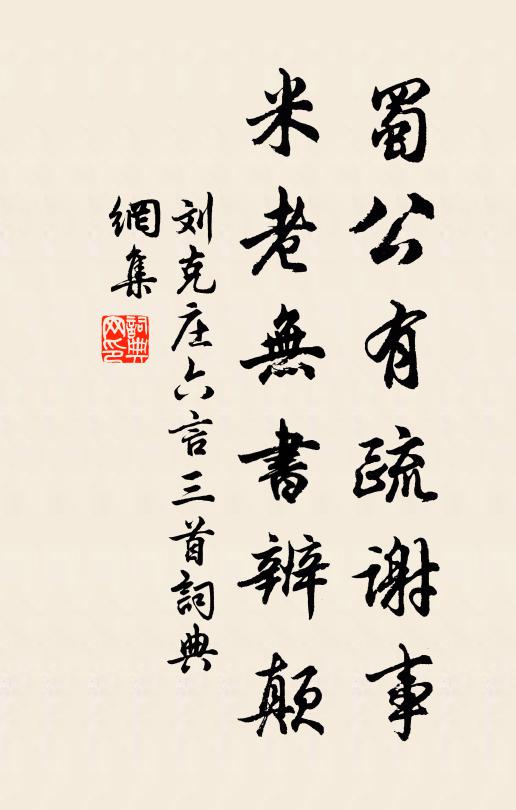 蜀公有疏谢事
米老無書辨顛
刘克庄六言三首詞典
網集
詞典
网印